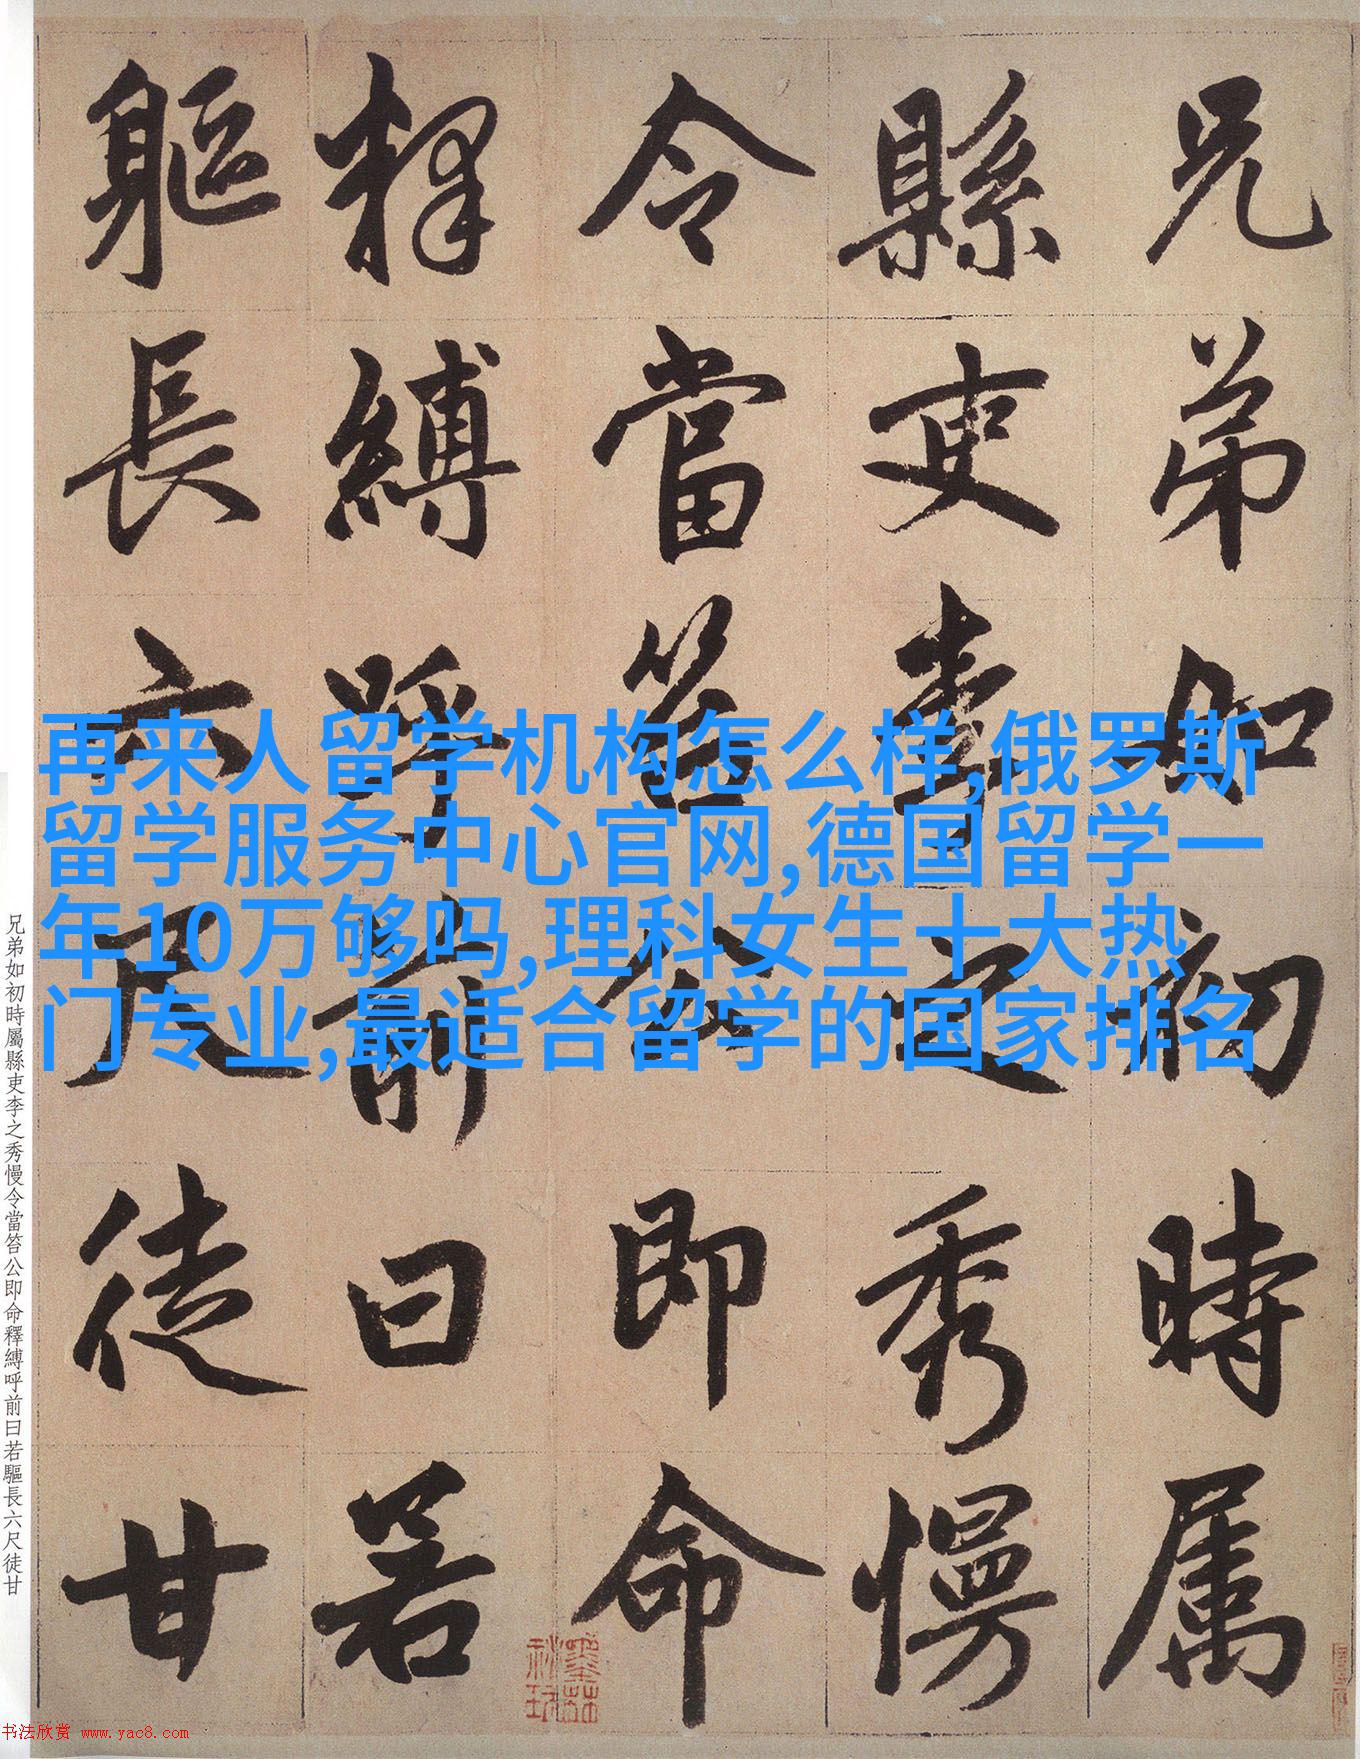 兄弟如初時属
縣吏李之秀慢
令當笞公即命
释縛呼前曰若
軀長六尺徒甘
再来人留学机构怎么样,俄罗斯
留学服务中心官网,德国留学一
年10万够吗,理科女生十大热
门专业,最适合留学的国家排名
兄弟如初時屬縣吏李之秀慢令當笞公即命釋縛呼前曰若驅長六尺徒甘
书法欣赏 www.yac8.com